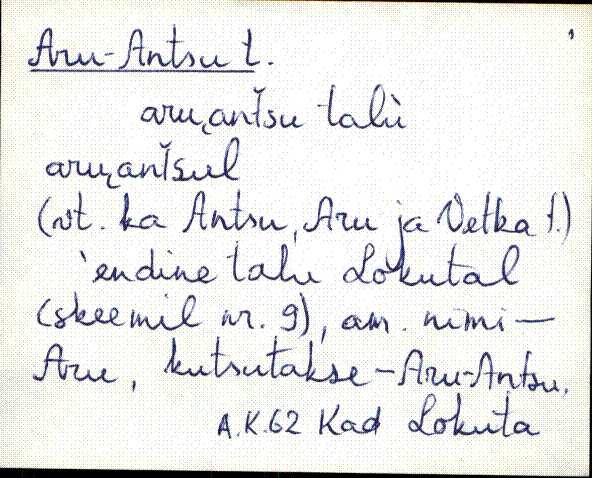 Aru-Antsu t.
aru͜antšu talù
aru͜antšul
(vt. ka Antsu, Aru ja Vetka t.)
'endine talu Lokutal
(skeemil nr. 9), am. nimi —
Aru, kutsutakse - Aru-Antsu.
A.K. 62 Kad Lokuta